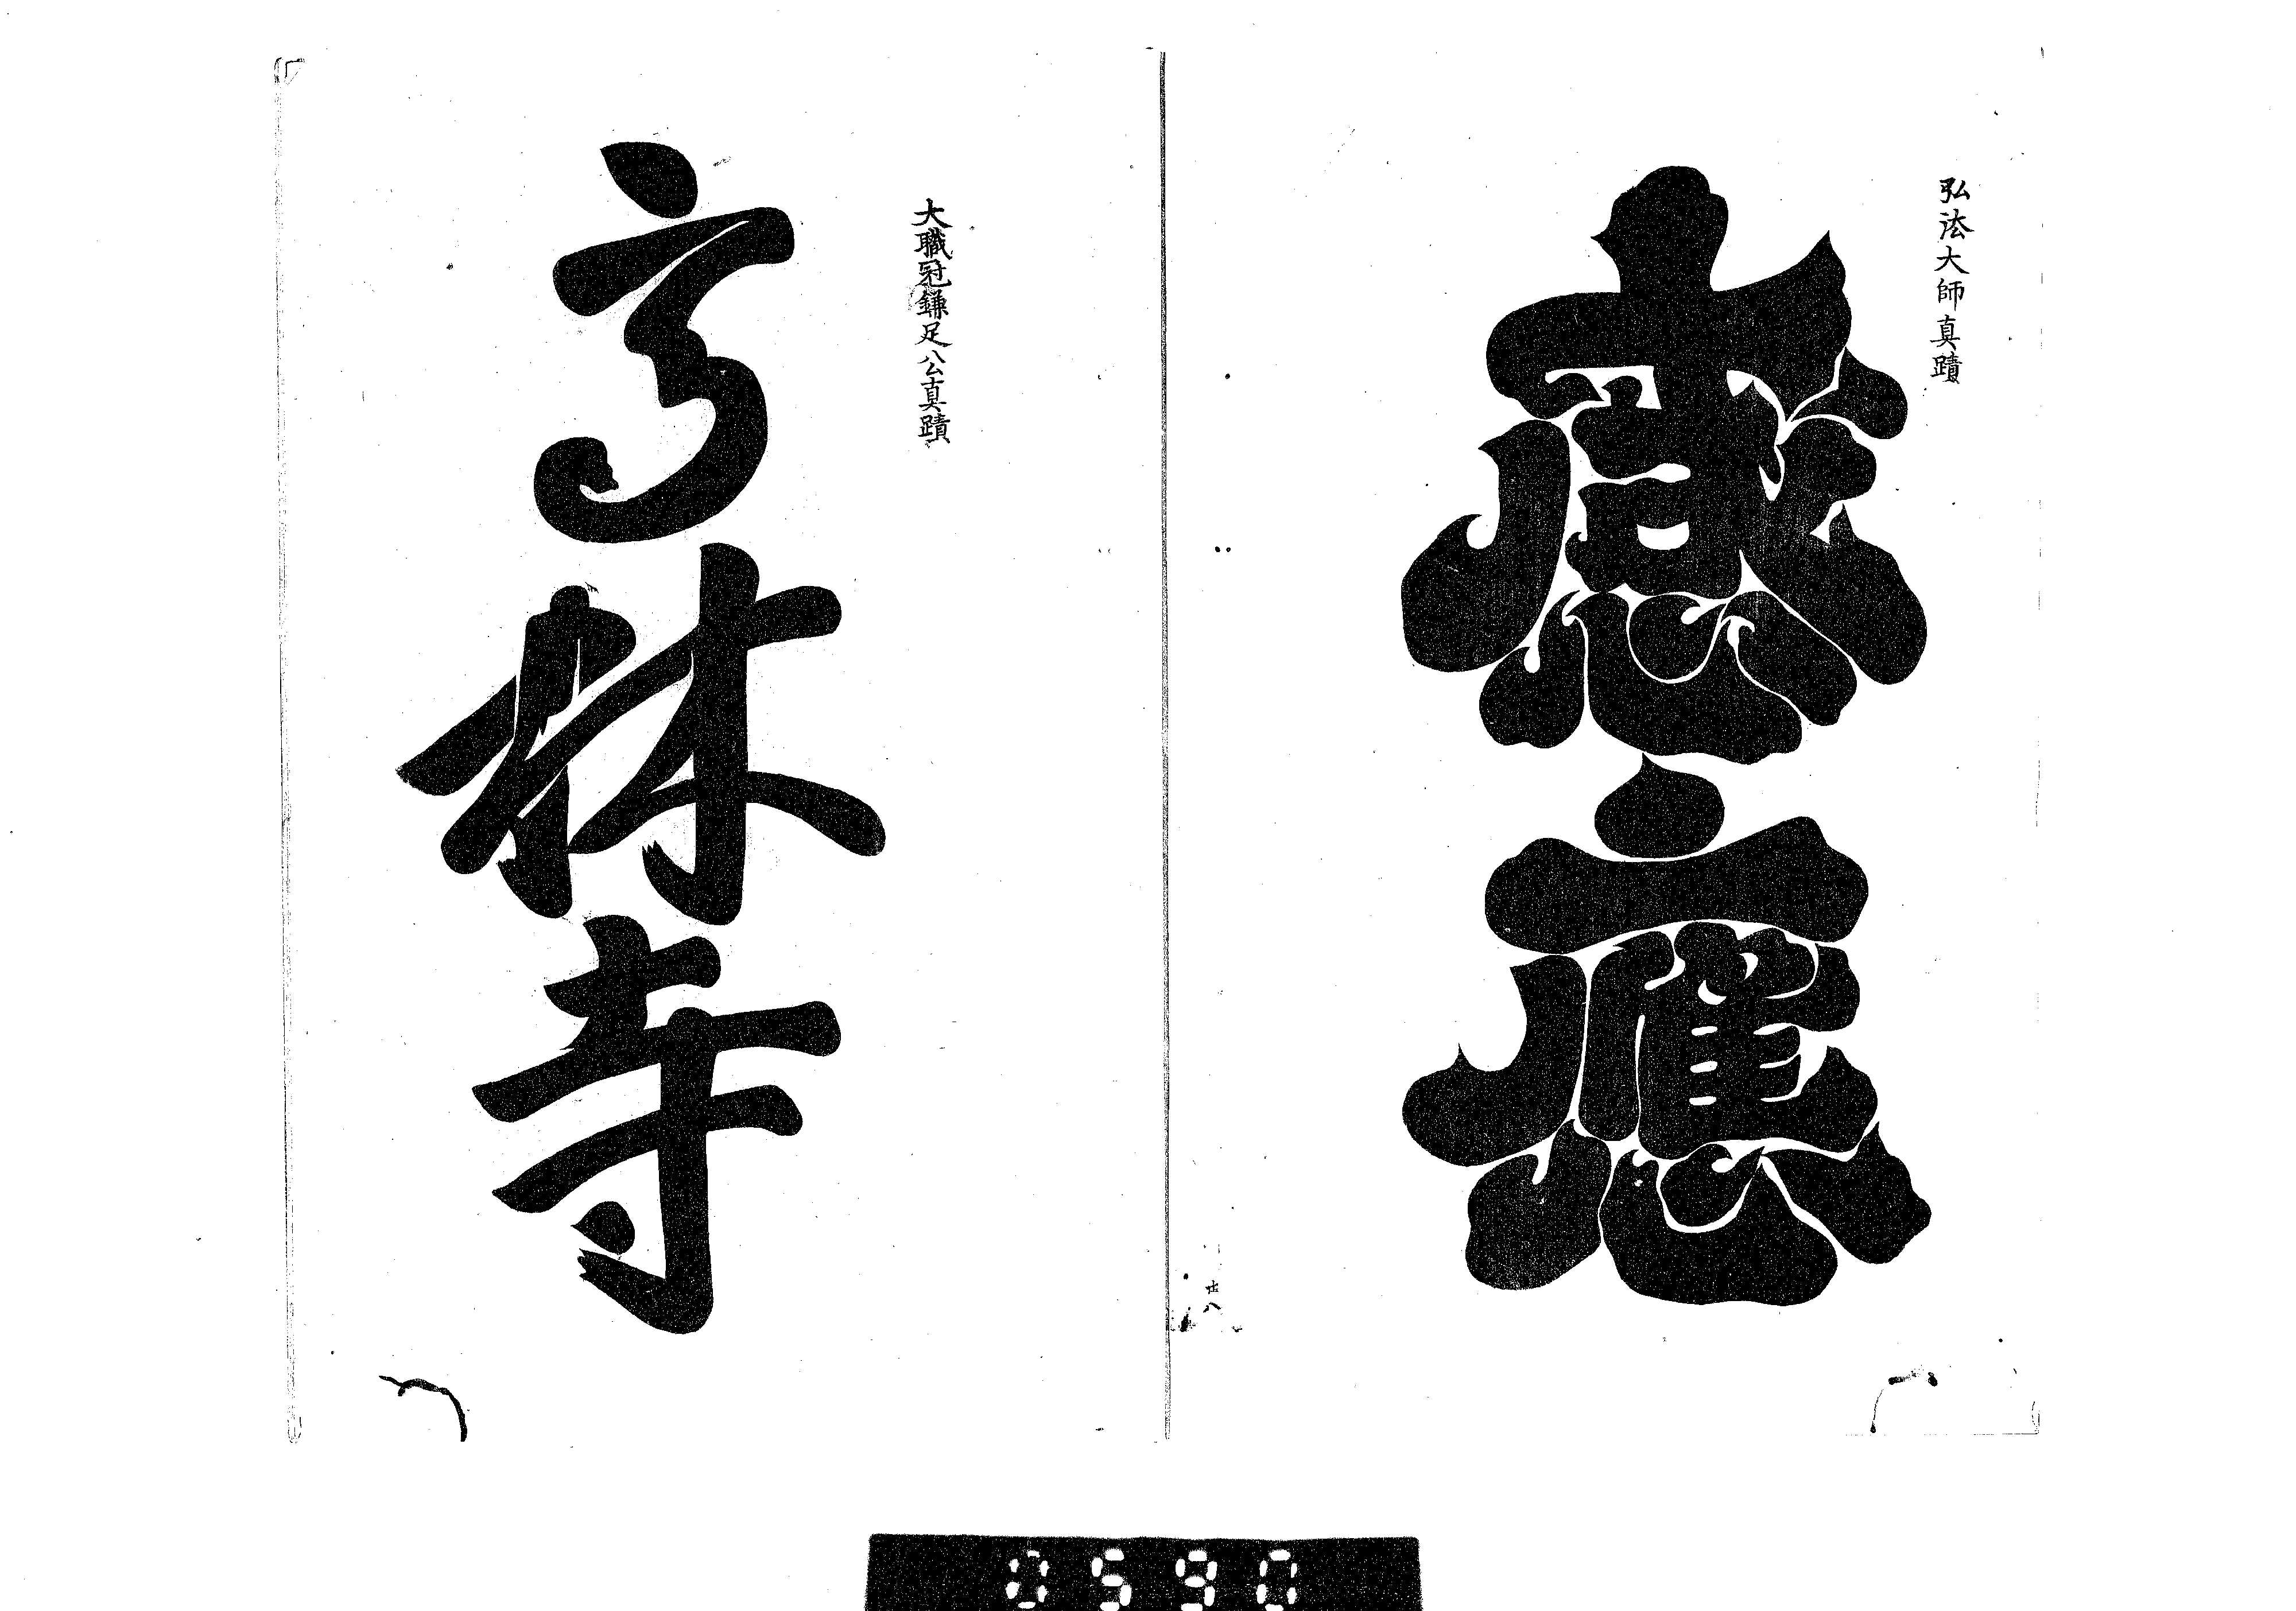 弘法大師真蹟
感應
大職冠鎌足公真蹟
高林寺
廿八
0590